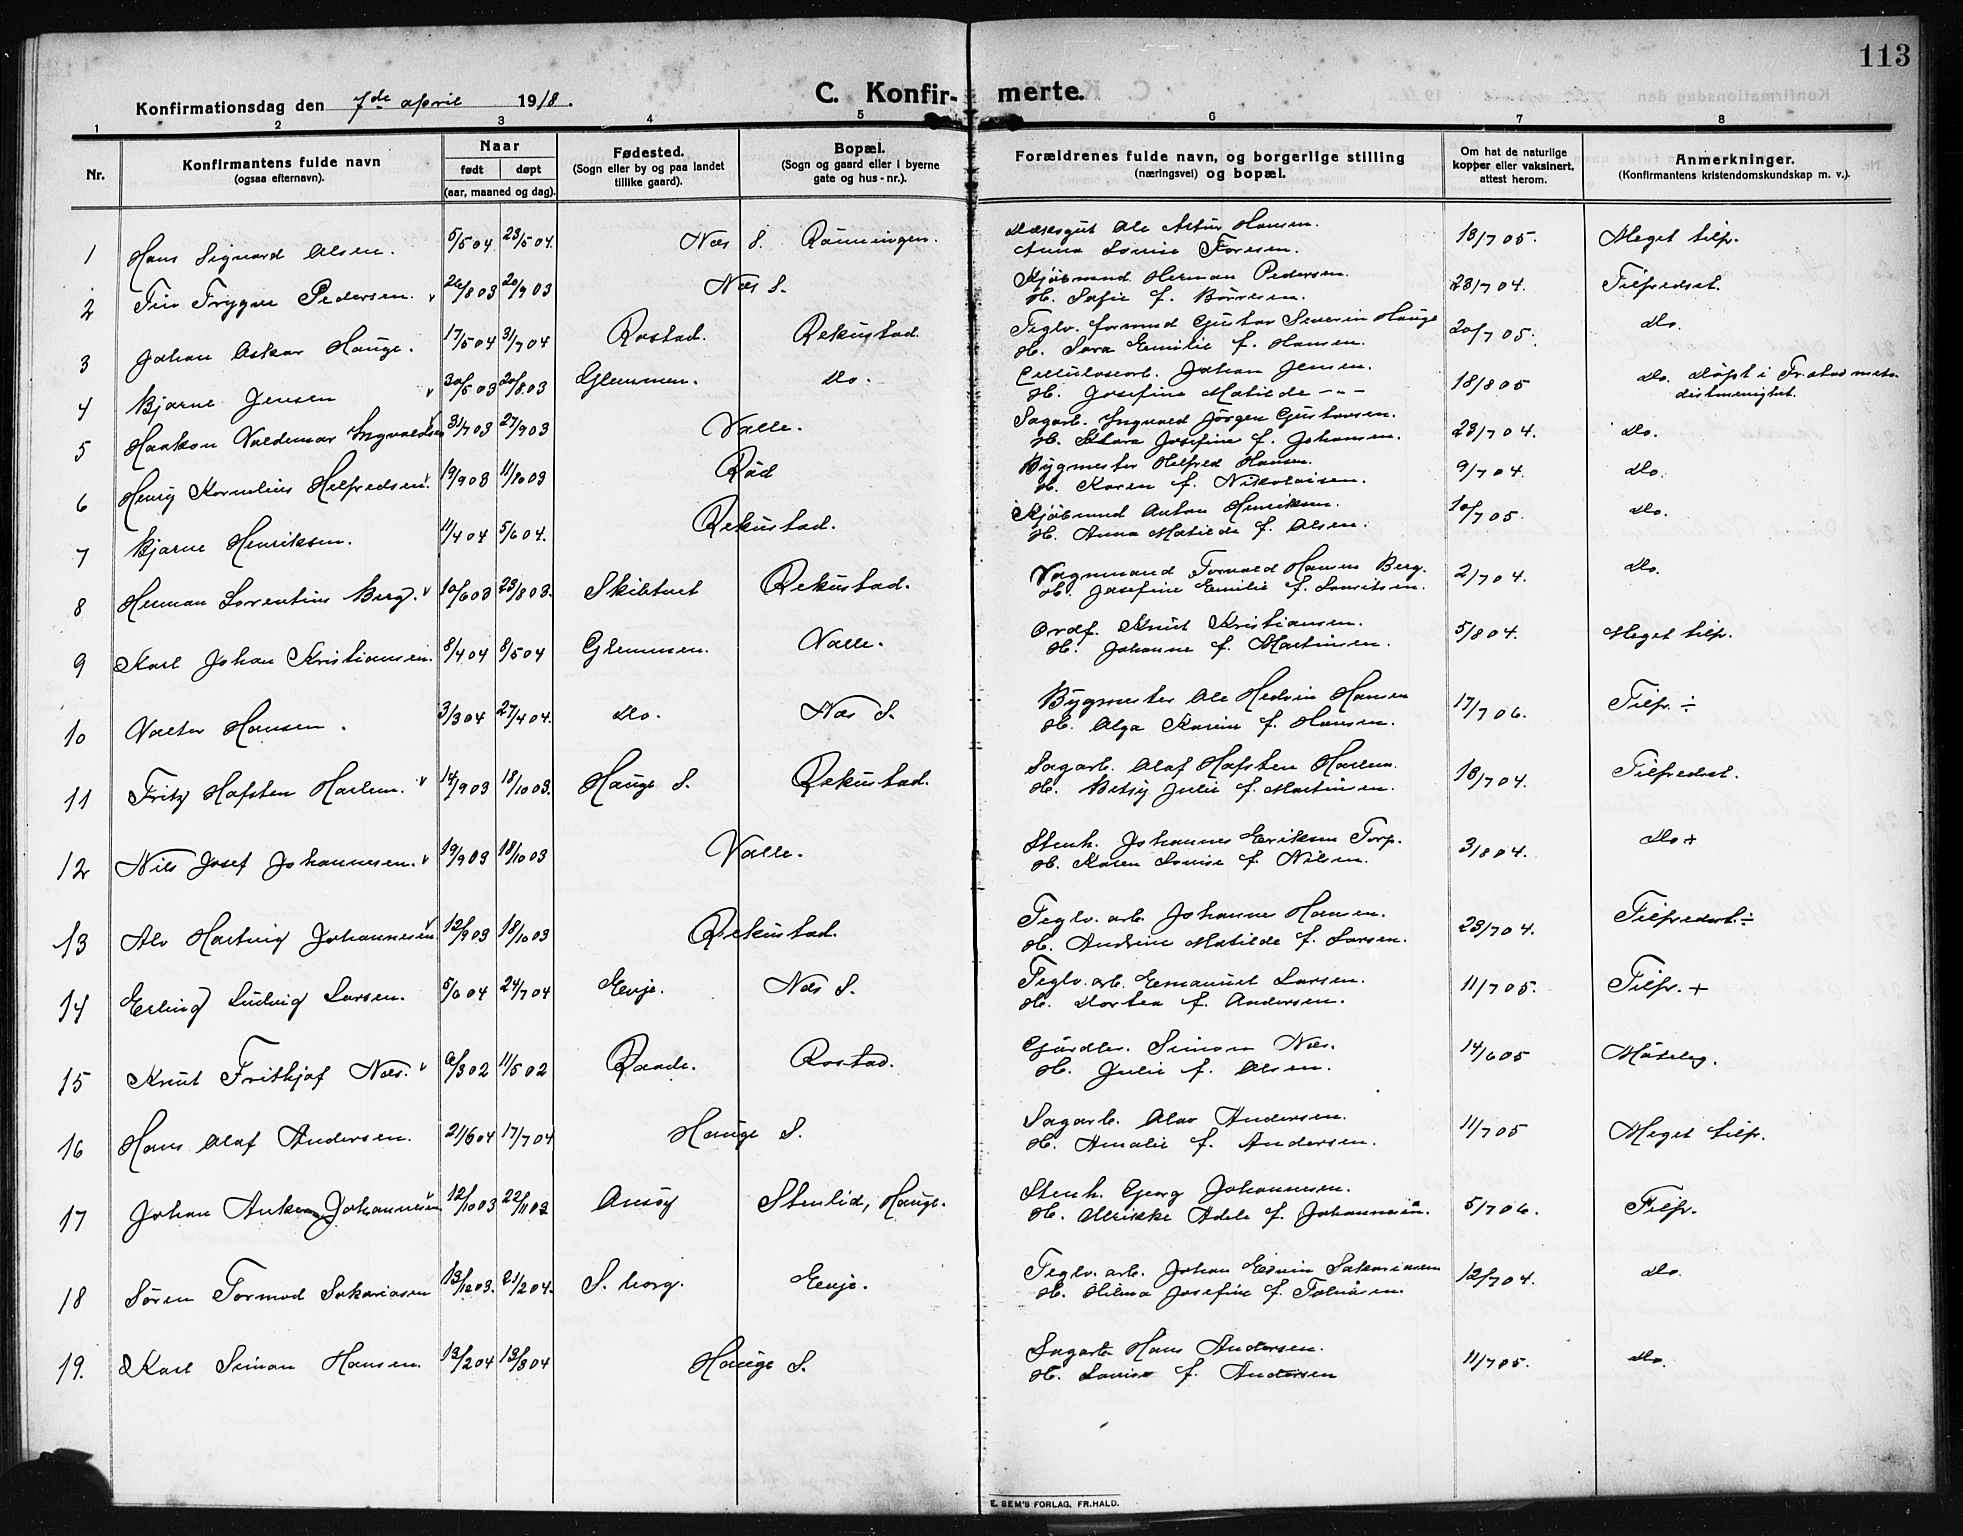 113
Konfirmationsdag den 7de april 1918.
C. Konfirmerte.
1 2 3 4 5 6 7 8
Nr.
Konfirmantens fulde navn (ogsaa efternavn).
Naar født døpt (aar, maaned og dag).
Fødested. (Sogn eller by og paa landet tillike gaard).
Bopæl. (Sogn og gaard eller i byerne gate og hus-nr.).
Forældrenes fulde navn, og borgerlige stilling (næringsvei) og bopæl.
Om hat de naturlige kopper eller vaksinert, attest herom.
Anmerkninger. (Konfirmantens kristendomskundskap m. v.).
1 Hans Sigvard Olsen. 5/5 04 23/5 04. Næs S. Rönningen. Ole Artur Hansen. 13/7 05. Meget tilfr.
Anna Lovise
2 Trygve Pedersen. 26/8 03 20/9 03 Næs S. Kjöbmnd Herman Pedersen. 23/7 04. Tilfredsst.
H. Sofie f. Börresen.
3 Johan Oskar Hauge. 17/5 04 31/7 04 Rostad. Rekustad. Teglv. formnd Gustav Severin Hauge 20/7 05. Do.
H. Sara Emilie f. Hansen.
4 Bjarne Jensen 30/5 03 20/8 03 Glemmen. Do. Celluloseab. Johan Jensen. 18/8 05 Do. Döpt i Fr.stad meto-
H. Josefine Matilde - " - distmenighet.
5 Haakon Valdemar Ingvaldsen 31/7 03 27/9 03 Valle. Sagarb. Ingvald Jörgen Gustavsen. 23/7 04. Do.
H. Klara Josefine f. Johansen.
6 Henry Kornelius Helfredsen. 19/9 03 11/10 03 Röd Bygmester Helfred Hansen. 9/7 04. Do.
H. Karen f. Nikolaisen.
7 Bjarne Henriksen. 11/4 04 5/6 04. Rekustad. Kjöbmnd Anton Henriksen. 10/7 05. Do.
H. Anna Matilde f. Olsen.
8 Herman Lorentius Berg. 10/6 03 23/8 03. Skibtvet Rekustad. Vognmand Torvald Hansen Berg. 2/7 04. Do.
H. Josefine Emilie f. Lauritsen.
9 Karl Johan Kristiansen. 8/4 04 8/5 04 Glemmen. Valle. Ordf. Knut Kristiansen. 5/8 04. Meget tilfr.
H. Johanne f. Martinsen.
10 Valter Hansen. 3/3 04 27/4 04. Do. Næs S. Bygmester Ole Hedvin Hansen 17/7 06. Tilfr. ÷
H. Olga Karine f. Hansen.
11 Fritz Hafsten Harlem. 14/9 03 18/10 03. Hauge S. Rekustad. Sagarb. Olaf Hafsten Harlem. 18/7 04. Tilfredsst.
H. Betsy Julie f. Martinsen.
12 Nils Josef Johannesen. 19/9 03 18/10 03 Valle. Stenh. Johannes Eriksen Torp. 3/8 04. Do +
H. Karen Lovise f. Nilsen.
13 Alv Hartvig Johannesen 12/9 03 18/10 03 Rekustad. Teglv. arb. Johannes Hansen. 23/7 04. Tilfredsst. ÷
H. Andrine Matilde f. Larsen.
14 Erling Ludvig Larsen. 5/6 04 24/7 04 Evje. Næs S. Teglv. arb. Emanuel Larsen. 11/7 05. Tilfr. +
H. Dortea f. Andersen.
15 Knut Frithjof Næs. 6/3 02 11/5 02 Raade. Rostad. Simon Næs. 14/6 05 Måtelig.
H. Julie f. Olsen.
16 Hans Olaf Andersen. 21/6 04 17/7 04 Hauge S. Sagarb. Olav Andersen. 11/7 05 Meget tilfr.
H. Amalie f. Andersen.
17 Johan Anker Johannesen 12/10 03 22/11 03 Onsöy Stenlid, Hauge. Stenh. Georg Johannesen. 5/7 06. Tilfr.
H. Ulrikke Adele f. Johannesen.
18 Sören Tormod Sakariasen 13/12 03. 21/2 04. S.borg. Evje. Teglv. arb. Johan Edvin Sakariasen 12/7 04. Do.
H. Hilma Josefine f. Tobiasen.
19. Karl Simon Hansen. 13/2 04 13/3 04 Hauge S. Sagarb. Hans Andersen. 11/7 05. Do.
H. Lovise f. Andersen
E. SEM'S FORLAG, FR.HALD.